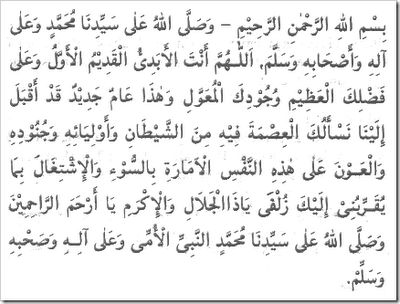 بِسْمِ اللهِ الرَّحْمٰنِ الرَّحِيْمِ – وَصَلَّى اللهُ عَلٰى سَيِّدِنَا مُحَمَّدٍ وَعَلٰى
آلِهِ وَأَصْحَابِهِ وَسَلَّمَ. اَللّٰهُمَّ أَنْتَ الْأَبَدِيُّ الْقَدِيْمُ الْأَوَّلُ وَعَلٰى
فَضْلِكَ الْعَظِيْمِ وُجُوْدِكَ الْمُعَوَّلِ وَهٰذَا عَامٌ جَدِيْدٌ قَدْ أَقْبَلَ
إِلَيْنَا نَسْأَلُكَ الْعِصْمَةَ فِيْهِ مِنَ الشَّيْطَانِ وَأَوْلِيَائِهِ وَجُنُوْدِهِ
وَالْعَوْنَ عَلٰى هٰذِهِ النَّفْسِ الْأَمَارَةِ بِالسُّوْءِ وَالْإِشْتِغَالَ بِمَا
يُقَرِّبُنِيْ إِلَيْكَ زُلْفَى يَاذَاالْجَلَالِ وَالْإِكْرَمِ يَا أَرْحَمَ الرَّاحِمِيْنَ
وَصَلَّى اللهُ عَلٰى سَيِّدِنَا مُحَمَّدٍ النَّبِيِّ الْأُمِّى وَعَلٰى آلِهِ وَصَحْبِهِ
وَسَلِّمْ.